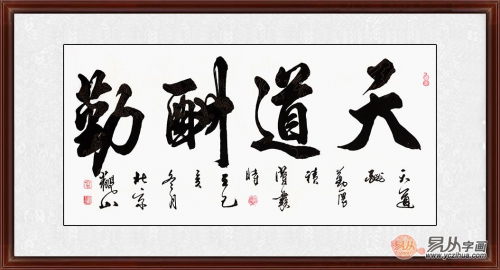 天道酬勤
天道
酬
勤厚
積
薄發
時
在己
亥
冬月
北京
觀山
易从
易从字画
www.yczihua.com